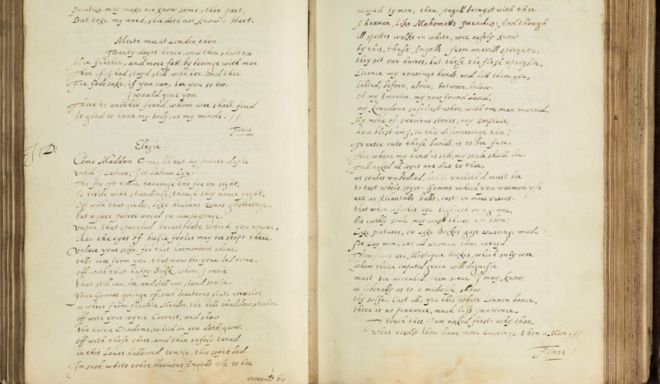 Perswade may make her know some other part,
But take my word, shee doth not know a Hart.
Meete mee at London then
Twenty dayes hence, and thou shalt see
mee fresher, and more fatt, by beinge with men
Then if I had stayd still with her, and thee
For Gods sake, if you can, bee you so too,
I would give you
There to another frend whom wee shall find
As glad to have my body, as my minde. //
Finis
Elegie.
Come Maddam Come,
Untill I Labour, I in Labour lye.
The foe oft times, haveinge the foe in sight,
Is tir'de with standinge, though they never fight,
Off with that girdle, like heavens zones glisteringe,
but a farre fairer world
Unpin that spangled brestplate which you weare,
that the eyes of busie fooles may be stopt there.
Unlace your selfe, for that harmonious chime,
tells mee from you, that now tis your bed time,
off with that happy Buske whom I envie
that still can bee, and still can stand soe nie.
Your gowne goinge off, such beauteous state reveales,
as when from flowrie Meades, the hills shaddow steales.
off with your wyrie Coronet, and show
the hairie Diademe, which on you doth grow.
off with those shoes, and then safely tread
in this Loves hallowed temple, this soft bed
In such white robes Heavens Angells us'd to bee
receaud by
receavd by men, thou Angell bringst with thee
A heaven, like Mahomets paradice, And though
ill spirits walke in white, wee easely know
by this, these Angells from an evill sprighte,
they set our haires, but these the flesh uprighte.
Licence my roveinge hands, and lett them goe,
behind, before, above, between, below.
Oh my America, my new found Land,
my Kingdome safeliest when with one man mannd,
My mine of precious stones, my Emperie,
how blest am I, in this discoveringe thee!
To enter into these bonds, is to bee free,
Then where my hand is sett, my seale shall bee.
nakednes all ioyes are due to thee,
as soules unbodied, bodies uncloth'd must bee
to tast whole ioyes. Gemms which you weomen use
are as Atlanta's balls, cast in mens views
that when a fooles eye
his earthly soule may covet theirs, not them.
Like pictures, or like Bookes gaye coverings made
for Lay men, are all weomen thus arayed.
Themselves are Mistique bookes, which only wee
whom their imputed grace will dignifie
must see reveal'd, then since I may know,
as liberally as to a midwife, show
thy selfe. Cast all, yea this white Linnen hence,
there is no pennance, much less innocence.
To teach thee I am naked first: why than,
What needst thou have more coveringe then a Man. //
Finis